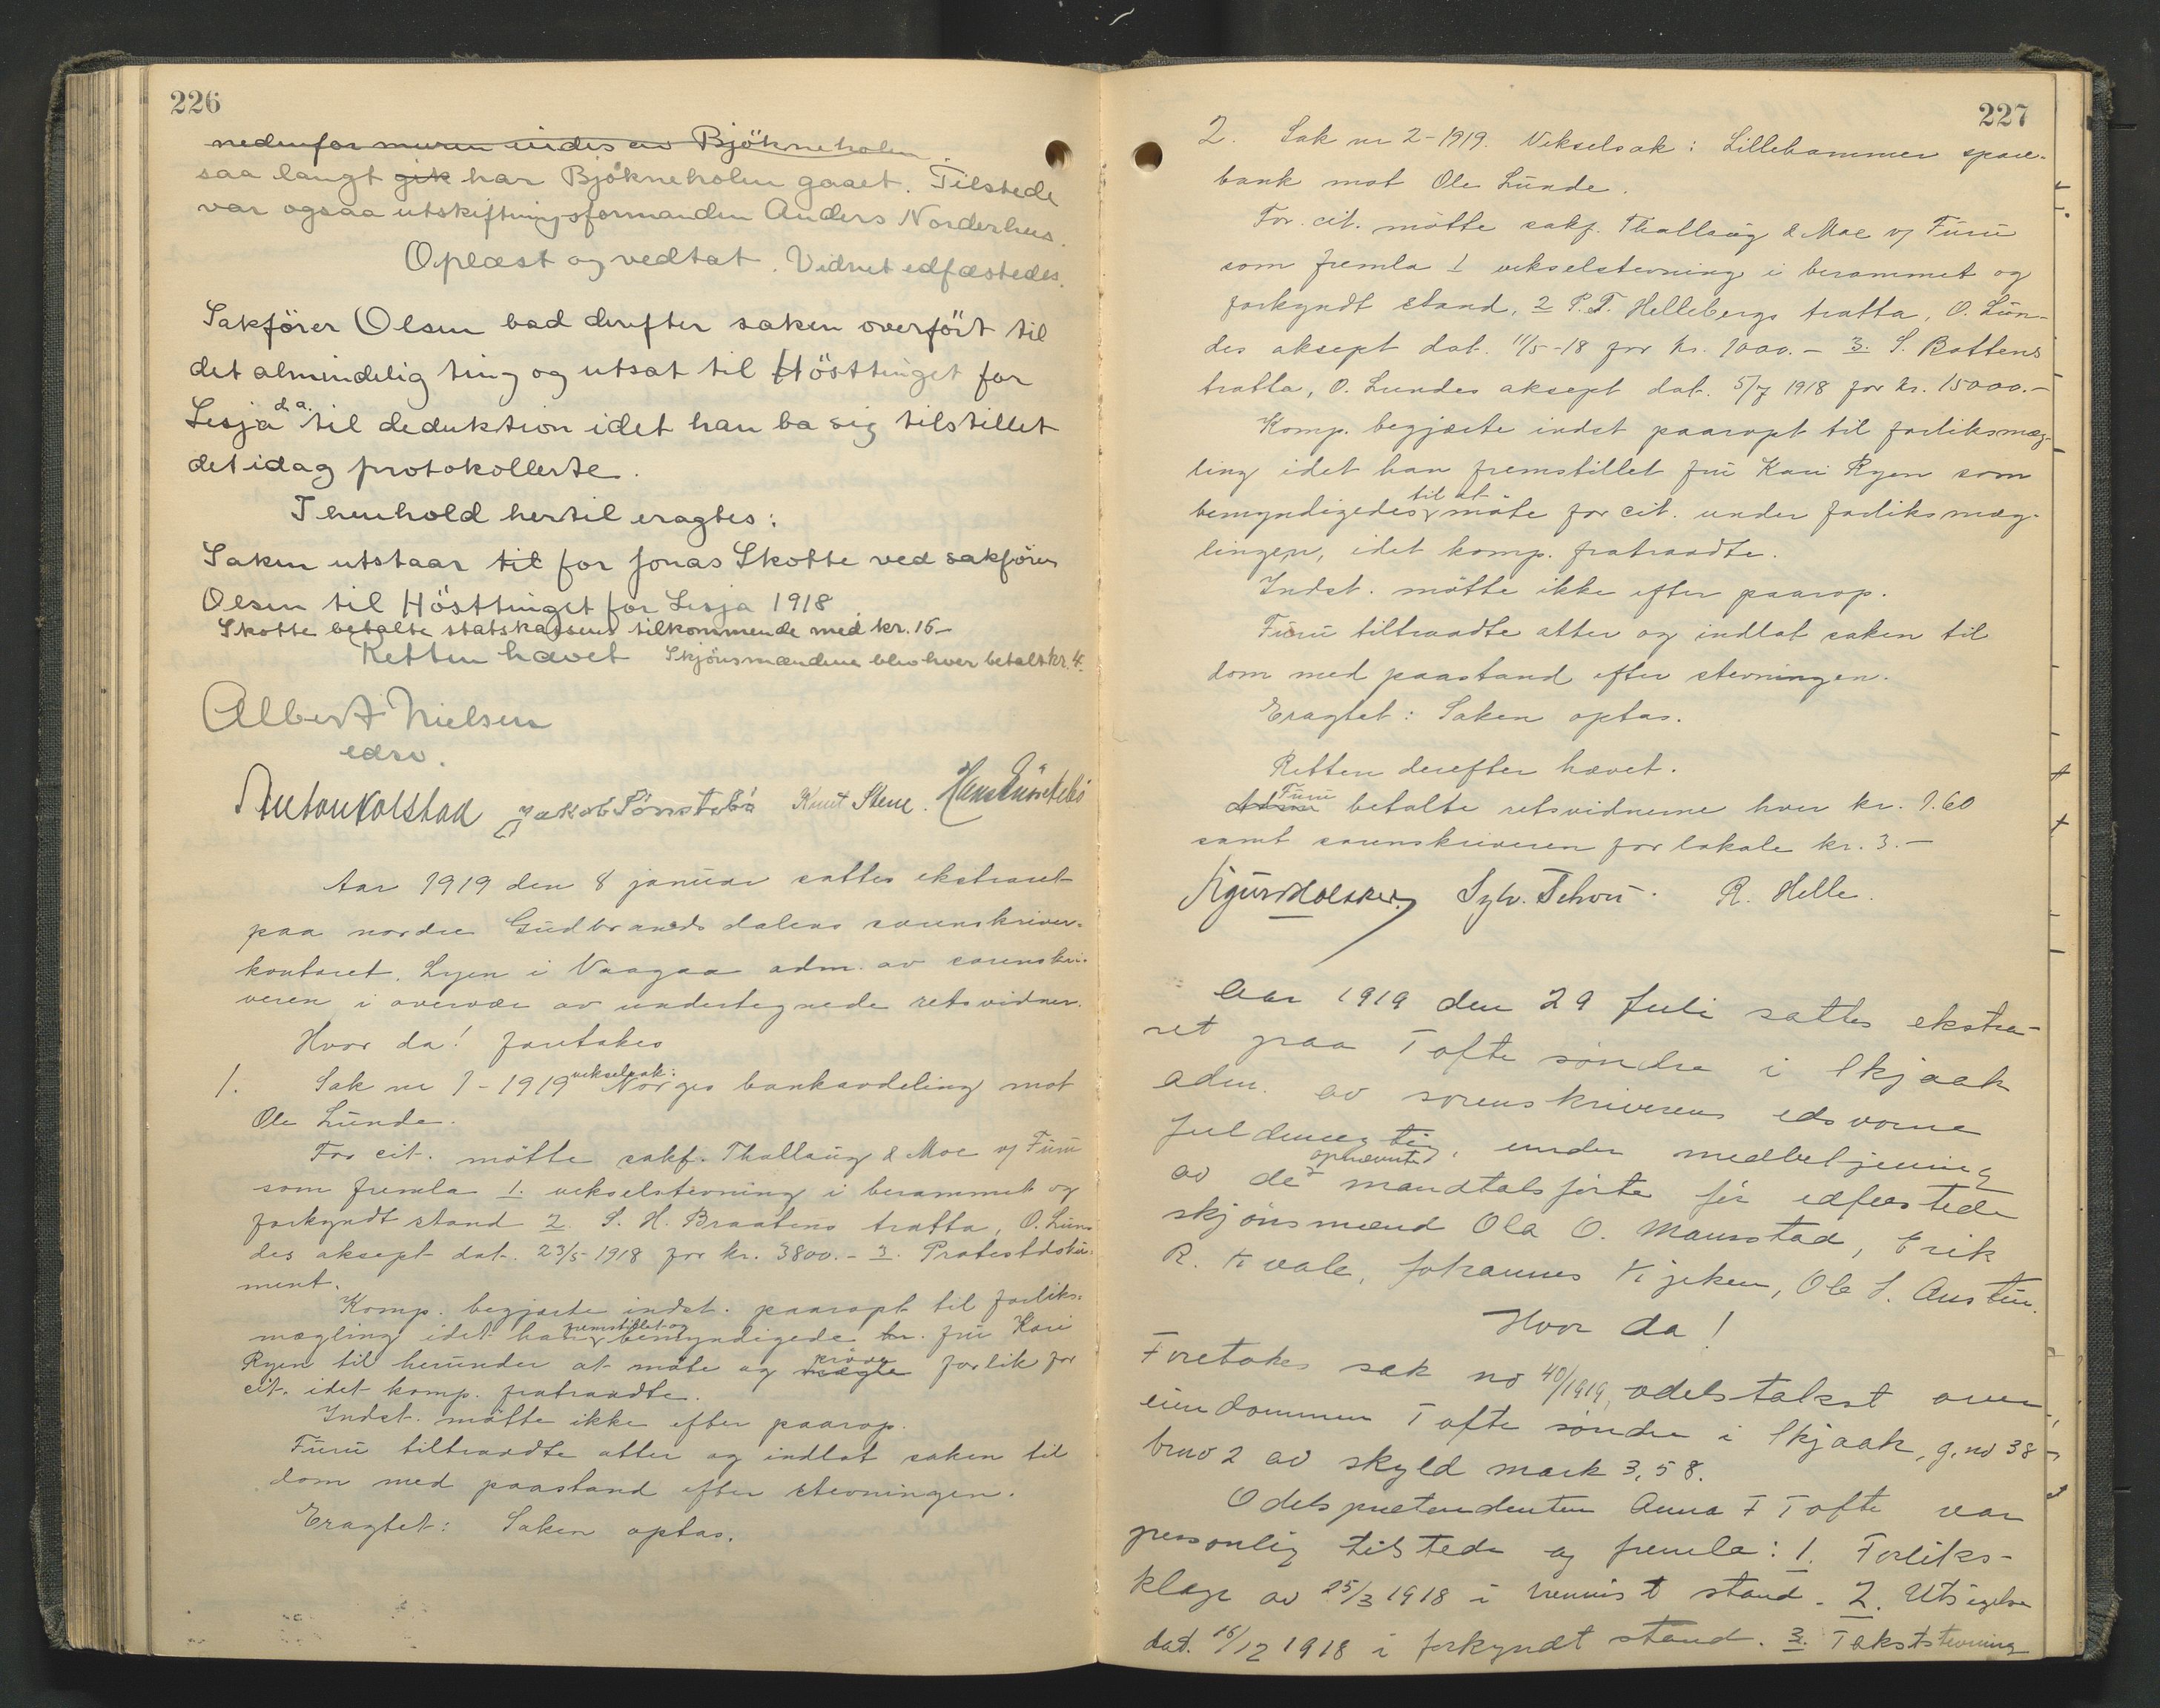 226
nedenfor muren indes av Bjökneholen
saa langt gik har Bjökneholen gaaet. Tilstede
var ogsaa utskiftningsformanden Anders Norderhus.
Oplæst og vedtat. Vidnet edfæstedes.
Sakförer Olsen bad derefter saken overfört til
det almindelig ting og utsat til Hösttinget for
Lesja d.a. til deduktion idet han ba sig tilstillet
det idag protokollerte.
I henhold hertil eragtes:
Saken utstaar til for Jonas Skotte ved sakförer
Olsen til Hösttinget for Lesja 1918.
Skotte betalte statskassens tilkommende med kr. 16-
Retten hævet Skjönsmændene blev hver betalt kr. 4.
Albert Nielsen
edsv.
Anton Kolstad Jakob Sönstebö Knut Stene. Hans
Aar 1919 den 8 januar sattes ekstraret
paa nordre Gudbrandsdalens sorenskriver-
kontoret, Lyen i Vaagaa adm. av sorenskri-
veren i overvær av undertegnede retsvidner.
Hvor da! foretokes
1. Sak nr 1-1919 vekselsak: Norges bankavdeling mot
Ole Lunde.
For cit. mötte sakf. Thallaug & Moe v/ Furu
som fremla 1. vekselstevning i berammet og
forkyndt stand 2. S. H. Braatens tratta, O. Lun-
des aksept dat. 23/5-1918 for kr. 3800.- 3. Protestdoku-
ment.
Komp. begjærte indst. paaropt til forliks-
mægling idet han fremstillet og bemyndigede fru Kari
Ryen til herunder at möte og mægle pröve forlik for
cit. idet komp. fratraadte.
Indst. mötte ikke efter paarop.
Furu tiltraadte atter og indlot saken til
dom med paastand efter stevningen.
Eragtet: Saken optas.
227
2. Sak nr 2-1919. Vekselsak: Lillehammer spare-
bank mot Ole Lunde.
For cit. mötte sakf. Thallaug & Moe v/ Furu
som fremla 1 vekselstevning i berammet og
forkyndt stand, 2 P. T. Hellebergs tratta, O. Lun-
des aksept dat. 11/5-18 for kr. 1000.- 3. S. Bottens
tratta, O. Lundes aksept dat. 5/7 1918 for kr. 15000.-
Komp. begjærte indst paaropt til forliksmæg-
ling idet han fremstillet fru Kari Ryen som
bemyndigedes til at möte for cit. under forliksmæg-
lingen, idet komp. fratraadte.
Indst. mötte ikke efter paarop.
Furu tiltraadte atter og indlot saken til
dom med paastand efter stevningen.
Eragtet: Saken optas.
Retten derefter hævet.
Furu betalte retsvidnerne hver kr. 1.60
samt sorenskriveren for lokale kr. 3.-
Sylv. Schou. R. Helle.
Aar 1919 den 29 Juli sattes ekstra-
ret paa Tofte söndre i Skjaak
adm. av sorenskriverens edsvorne
fuldmægtig, under medbetjening
av de opnævnte mandtalsförte för edfæstede
skjönsmænd Ola O. Maurstad, Erik
R. Kvale, Johannes Kjeken, Ole S. Austin.
Hvor da!
Foretokes sak no 40/1919, odelstakst over
eiendommen Tofte söndre i Skjaak, g. no 38
bruno 2 av skyld mark 3,58.
Odelsprætendenten Anna F Tofte var
personlig tilstede og fremla: 1. Forliks-
klage av 25/3 1918 i henvist stand. 2. Utsigelse
dat. 16/12 1918 i forkyndt stand. 3. Takststevning